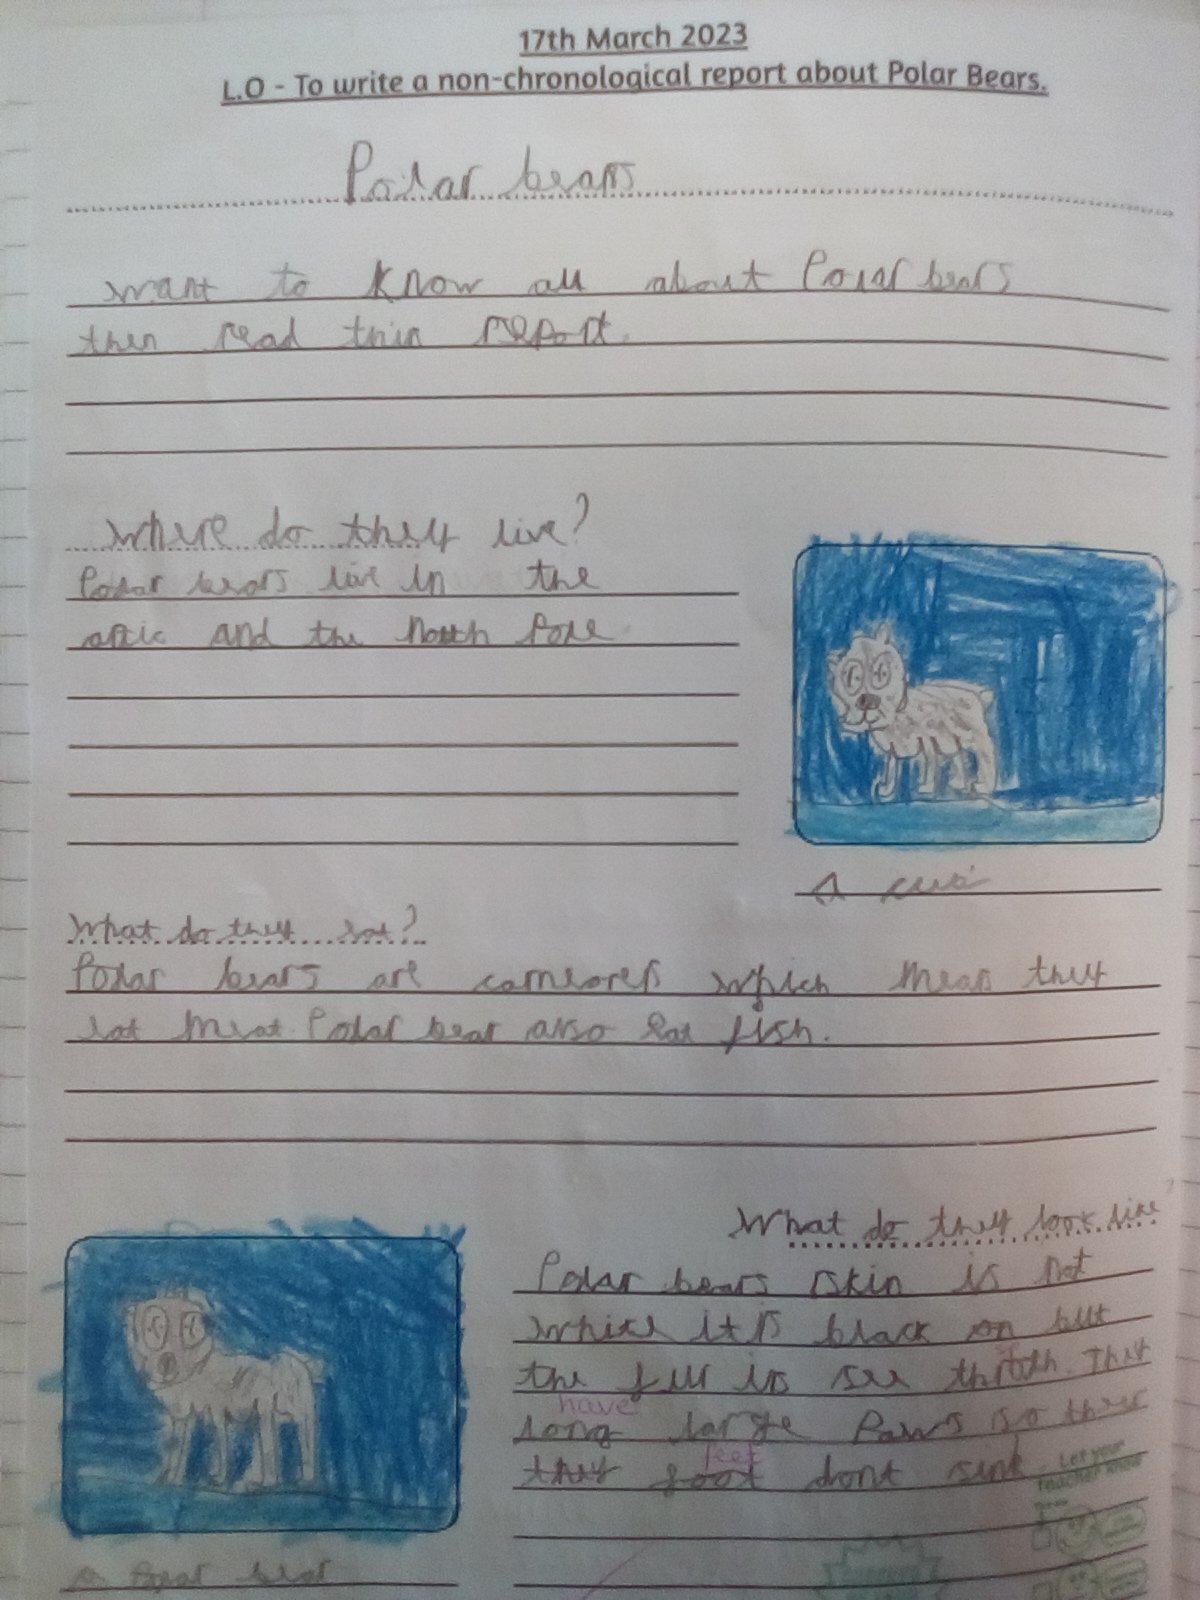 17th March 2023
L.O - To write a non-chronological report about Polar Bears.
Polar bears
want to know all about Polar bears
then read this report.
Where do they live?
Polar bears live in the
artic and the North Pole
A
What do they eat?
Polar bears are carneorers which mean they
eat meat. Polar bear also eat fish.
What do they look like?
Polar bears skin is not
white it is black on but
the fur is see throth. They
have
long large Paws so there
feet
they foot dont sink
Let your
teacher know
A Polar bear